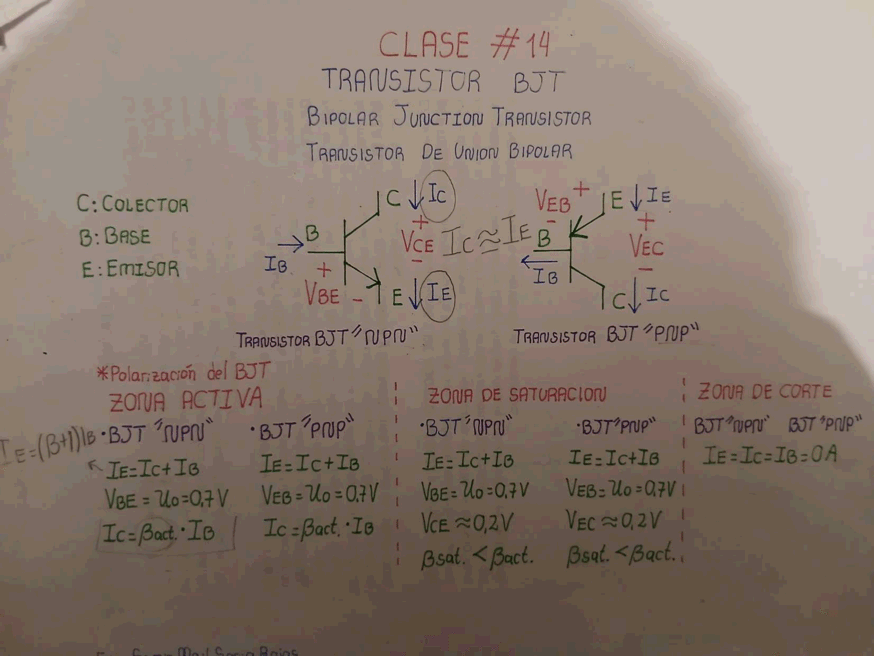 CLASE #14
TRANSISTOR BJT
BIPOLAR JUNCTION TRANSISTOR
TRANSISTOR DE UNION BIPOLAR
C: COLECTOR
B: BASE
E: EMISOR
C ↓ IC
B
→ IB
+ VCE −
+ VBE −
E ↓ IE
IC ≈ IE
VEB + −
E ↓ IE
B
← IB
+ VEC −
C ↓ IC
TRANSISTOR BJT "NPN"
TRANSISTOR BJT "PNP"
*Polarización del BJT
ZONA ACTIVA
·BJT "NPN"
IE=(B+1)IB
IE=IC+IB
VBE = Uo=0,7V
IC=βact.·IB
·BJT "PNP"
IE=IC+IB
VEB=Uo=0,7V
IC=βact.·IB
ZONA DE SATURACION
·BJT "NPN"
IE=IC+IB
VBE=Uo=0,7V
VCE≈0,2V
βsat.<βact.
·BJT "PNP"
IE=IC+IB
VEB=Uo=0,7V
VEC≈0,2V
βsat.<βact.
ZONA DE CORTE
BJT "NPN" BJT "PNP"
IE=IC=IB=0A